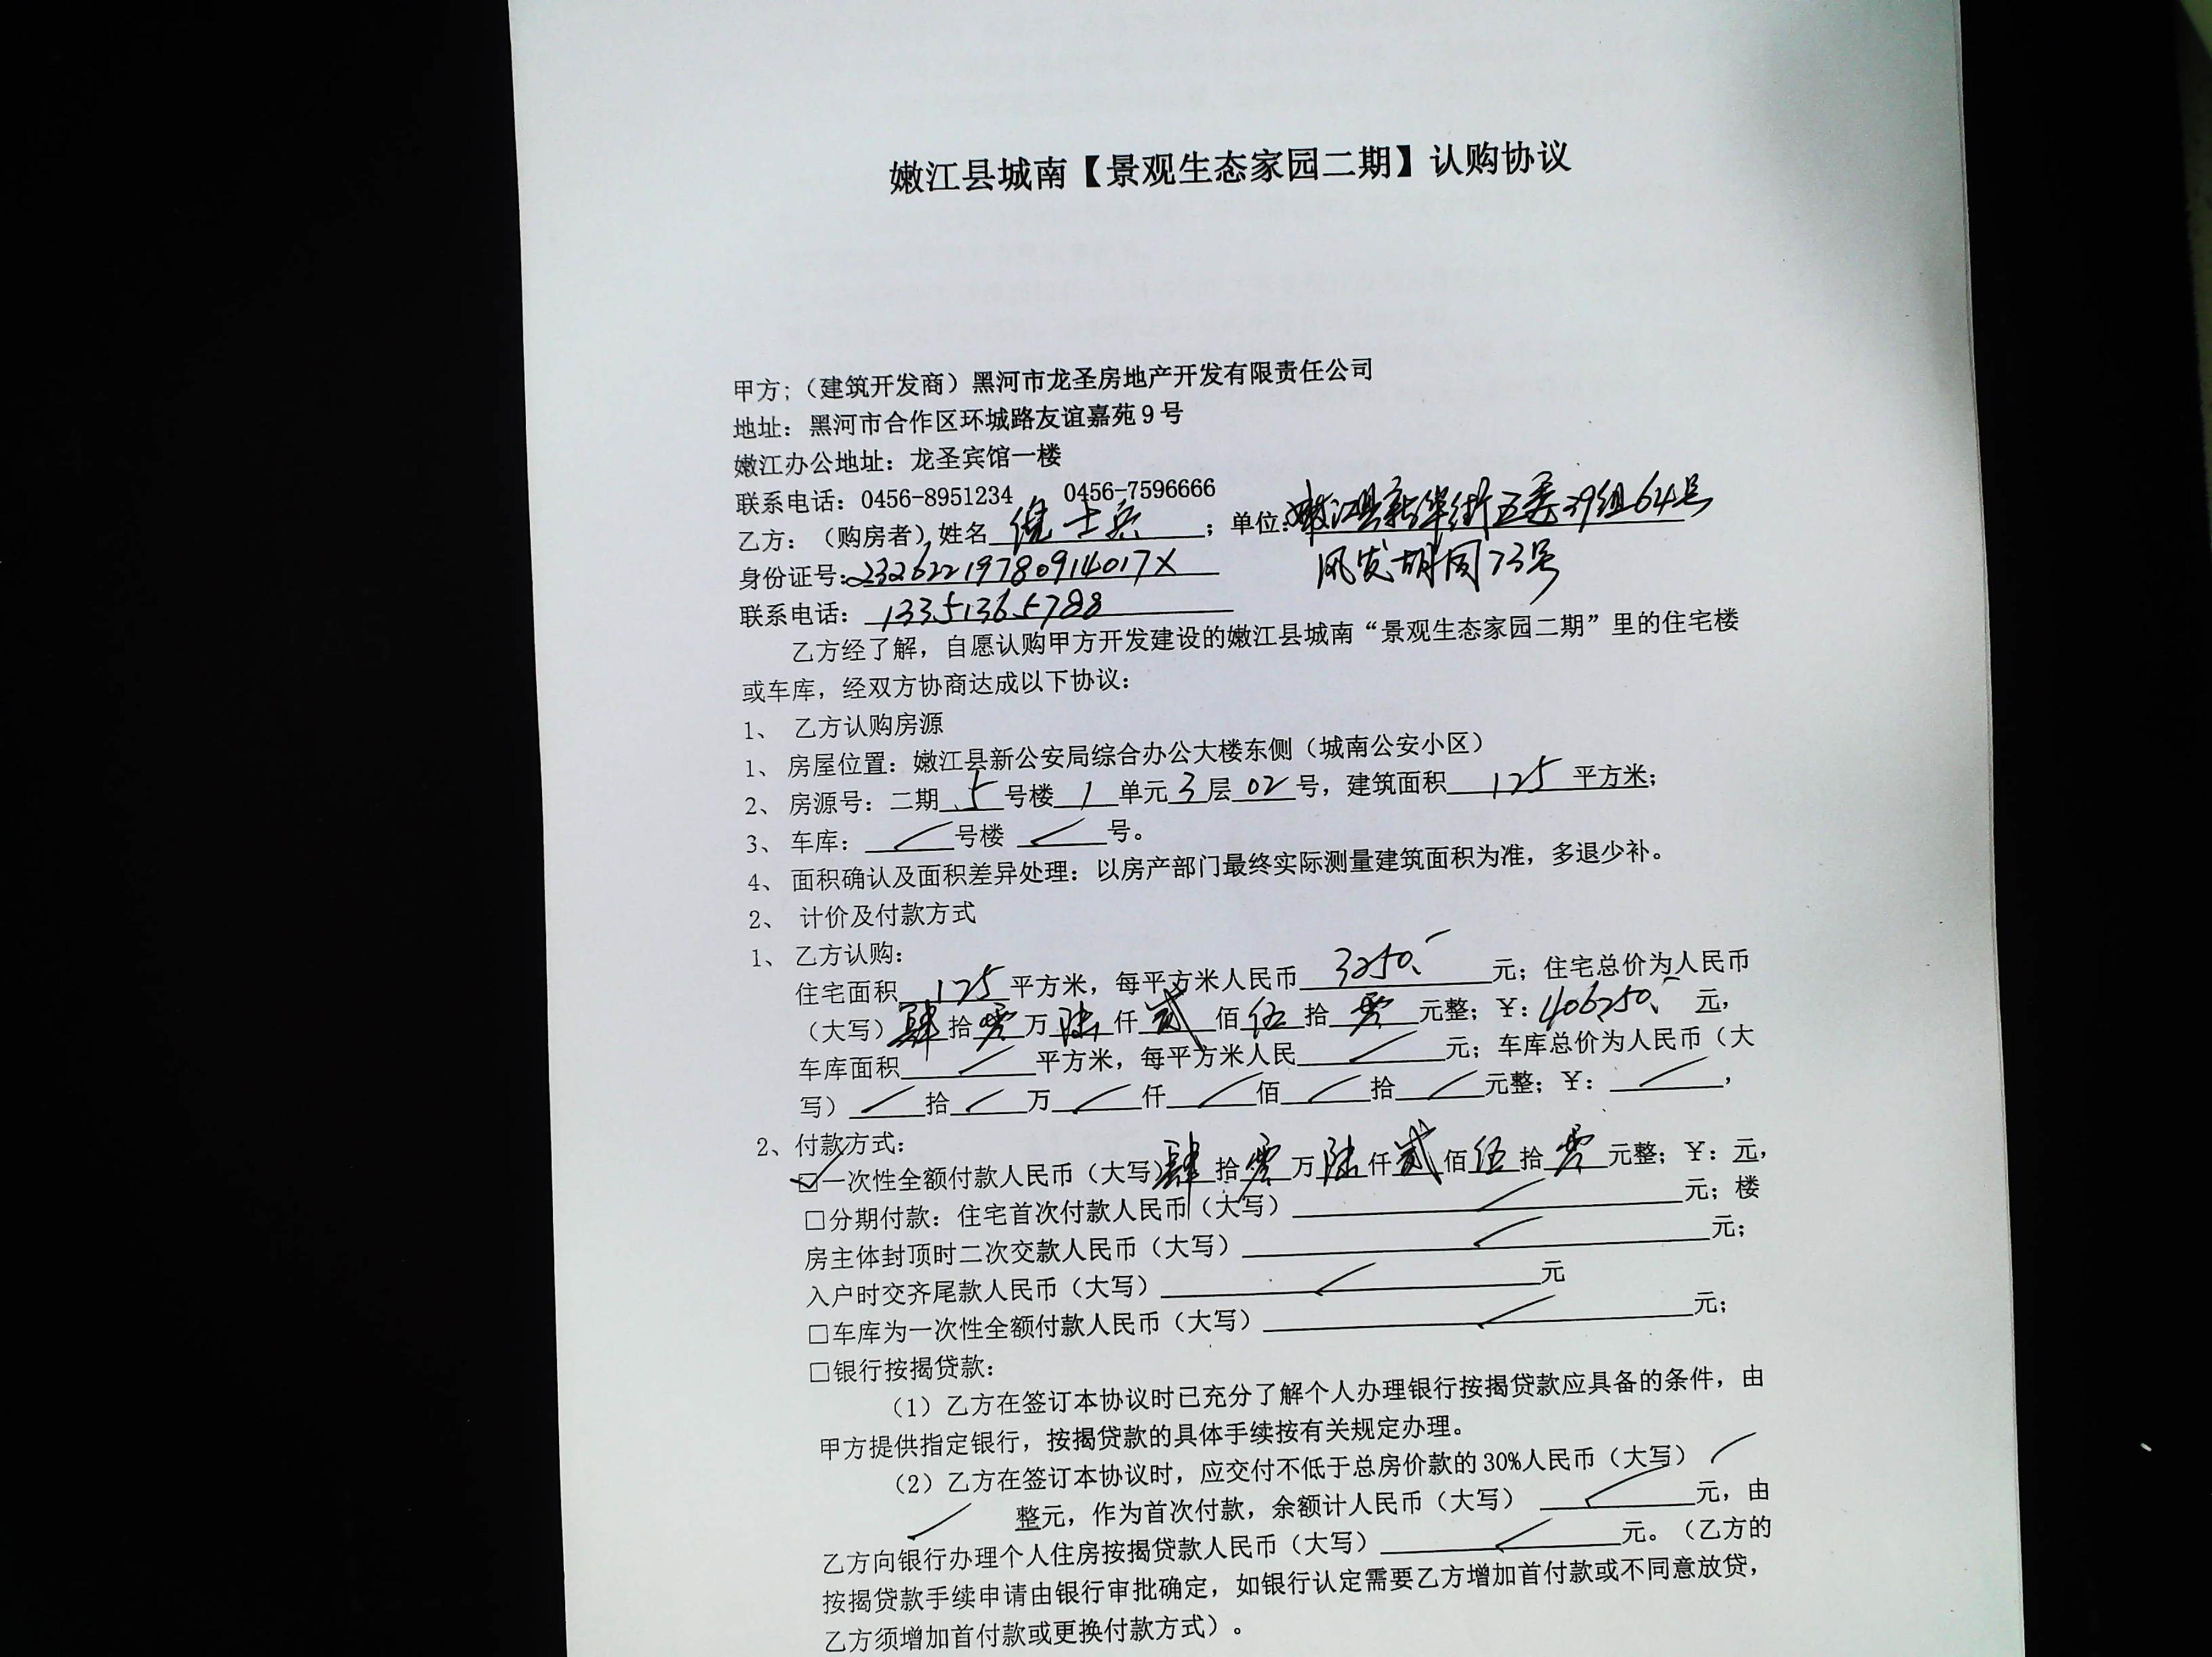 嫩江县城南【景观生态家园二期】认购协议
甲方;（建筑开发商）黑河市龙圣房地产开发有限责任公司
地址：黑河市合作区环城路友谊嘉苑9号
嫩江办公地址：龙圣宾馆一楼
联系电话：0456-8951234 0456-7596666
乙方：（购房者）姓名 倪士兵 ；单位：嫩江县新华街五委39组64号
凤发胡同73号
身份证号：23262219780914017X
联系电话：13351365788
乙方经了解，自愿认购甲方开发建设的嫩江县城南“景观生态家园二期”里的住宅楼
或车库，经双方协商达成以下协议：
1、 乙方认购房源
1、 房屋位置：嫩江县新公安局综合办公大楼东侧（城南公安小区）
2、 房源号：二期 5 号楼 1 单元 3 层 02 号，建筑面积 125 平方米；
3、 车库： 号楼 号。
4、 面积确认及面积差异处理：以房产部门最终实际测量建筑面积为准，多退少补。
2、 计价及付款方式
1、 乙方认购：
住宅面积 125 平方米，每平方米人民币 3250.- 元；住宅总价为人民币
（大写）肆拾零万陆仟贰佰伍拾零元整；￥：406250.- 元，
车库面积 平方米，每平方米人民 元；车库总价为人民币（大
写） 拾 万 仟 佰 拾 元整；￥： ，
2、付款方式：
☑一次性全额付款人民币（大写）肆拾零万陆仟贰佰伍拾零元整；￥：元，
□分期付款：住宅首次付款人民币（大写） 元；楼
房主体封顶时二次交款人民币（大写） 元；
入户时交齐尾款人民币（大写） 元
□车库为一次性全额付款人民币（大写） 元；
□银行按揭贷款：
（1）乙方在签订本协议时已充分了解个人办理银行按揭贷款应具备的条件，由
甲方提供指定银行，按揭贷款的具体手续按有关规定办理。
（2）乙方在签订本协议时，应交付不低于总房价款的30%人民币（大写）
整元，作为首次付款，余额计人民币（大写） 元，由
乙方向银行办理个人住房按揭贷款人民币（大写） 元。（乙方的
按揭贷款手续申请由银行审批确定，如银行认定需要乙方增加首付款或不同意放贷，
乙方须增加首付款或更换付款方式）。